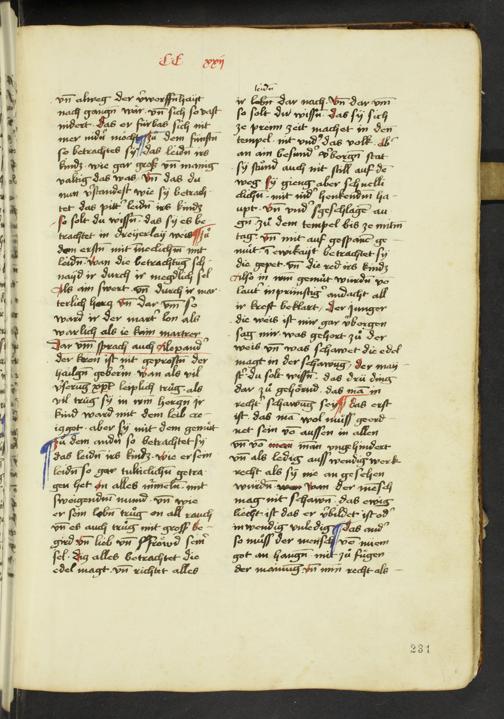 CC xxij
vñ alweg der vͥworffnhait
nach gangn wir vñ sich so vast
nidert das er fürbas sich nit
mer nidͥn mocht ¶ zu dem fünfftn
so betrachtes sy das leidn irs
kindz wie gar groß vñ manig
valtig das was vñ das du
man vͥstandest wie sy betrach
tet das pittͥ leidn irs kindz
so solt du wissn das sy es be
trachtet in dreyerlay weis ¶ zu
dem erstn mit mͥedlichem mit
leidn wan die betrachtung sch
naid ir durch ir megdlich sel
als ain swert vñ durch ir mͥue
terlich hercz vñ dar vm so
ward ir der martͥ lon als
warlich als ie kain martrer
dar vm sprach auch Alexand
der kron ist mit geprossn der
hailgn geborn̄ wan als vil
vnserͥug xp̄c leiplich trüg als
vil trüg sy in irm herczn ir
kind ward mit dem leib cre
icziget aber sy mit dem gemüt
¶ zu dem andn̄ so betrachtet sy
das leidn irs kindz wie er sein
leidn so gar tultiklichn getra
gen het on alles mͥueln mit
sweigendn̄ mund vñ wie
er sein lebn̄ trüg on all rauch
vñ es auch trüg mit grosß be
gird vñ lieb vñ sffrowd seinͥ
sel dis alles betrachtet die
edel magt vñ richtet alles
leidn
ir lebn̄ dar nach vñ dar vm
so solt du wissn̄ das sy sich
ze preim zeit machet in den
tempel nit undͥ das volk all
an ain besundͥ vͥborgn stat
sy stünd auch nit still auf de
weg sy gieng aber schnelli
clichn mit undͥ henkendn ha
upt vñ undͥ geschlagen au
gn zu dem tempel bis ze mitn̄
tag vñ mit auf gespanē ge
müt in ewikait betrachtet sy
die gepet vñ die red irs kindz
also in irm gemüt wurdn̄ vo
laut inprünstig andacht all
ir kreft beklart der junger
die weis ist mir gar vͥborgen
sag mir was gehört zu der
weis vñ was schawet die edel
magt in der schawung der mai
stͥ du solt wissn̄ das drü ding
dar zu gehörnd das ma in
rechtͥ schawung sey ¶ das erst
ist das ma wol müss geord
net sein vo aussen in allen
vñ vo man ungehindert
vñ als ledig auss wendigͥ werk
recht als sy nie an gesehen
wurdn̄ wan wan der mesch
mag nit schawn̄ das ewig
liecht ist das er vͥbildet ist od
inwendig unledig ¶ das andͥ
so müss der mensch vo niem
got an hangn mit zu fügen
der mainung vñ min recht als
231